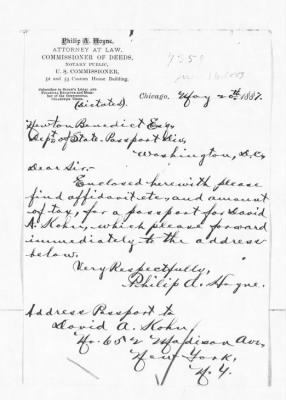 Philip A. Hoyne,
ATTORNEY AT LAW,
COMMISSIONER OF DEEDS,
NOTARY PUBLIC,
U. S. COMMISSIONER,
51 and 53 Custom House Building.
(Dictated).
Chicago, May 20th 1887.
Newton Benedict Esq.
Dept of State. Passport Div.
Washington, D.C.
Dear Sir:-
Enclosed herewith please
find affidavit etc, and amount
of tax, for a passport for David
A. Kohn, which please forward
immediately to the address
below.
Very Respectfully,
Philip A. Hoyne.
Address Passport to
David A. Kohn
No. 652 Madison Ave,
New York,
N.Y.